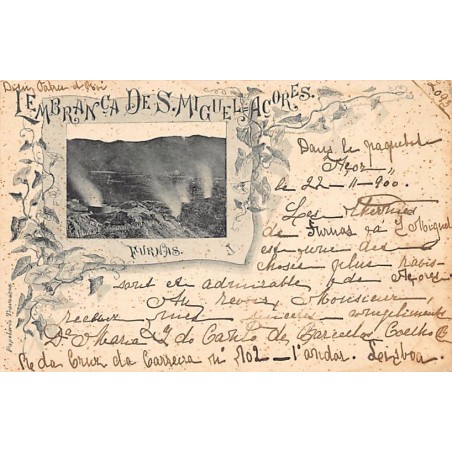 Dieu, Patrie et Roi
2093
LEMBRANÇA DE S. MIGUEL - AÇORES.
FURNAS.
Dans le paquebot
"Açor"
le 22-11-900.
Les Thermes
de Furnas à S. Miguel
est une des
choses plus ravis-
sant et admirable de Açores
Au revoir, Monsieur,
recevez mes sincères compliments
Da. Maria I. do Carmo de Barcellos Coelho B
R. da Cruz da Carreira nº 102 - 1º andar. Lisboa.
Papelaria